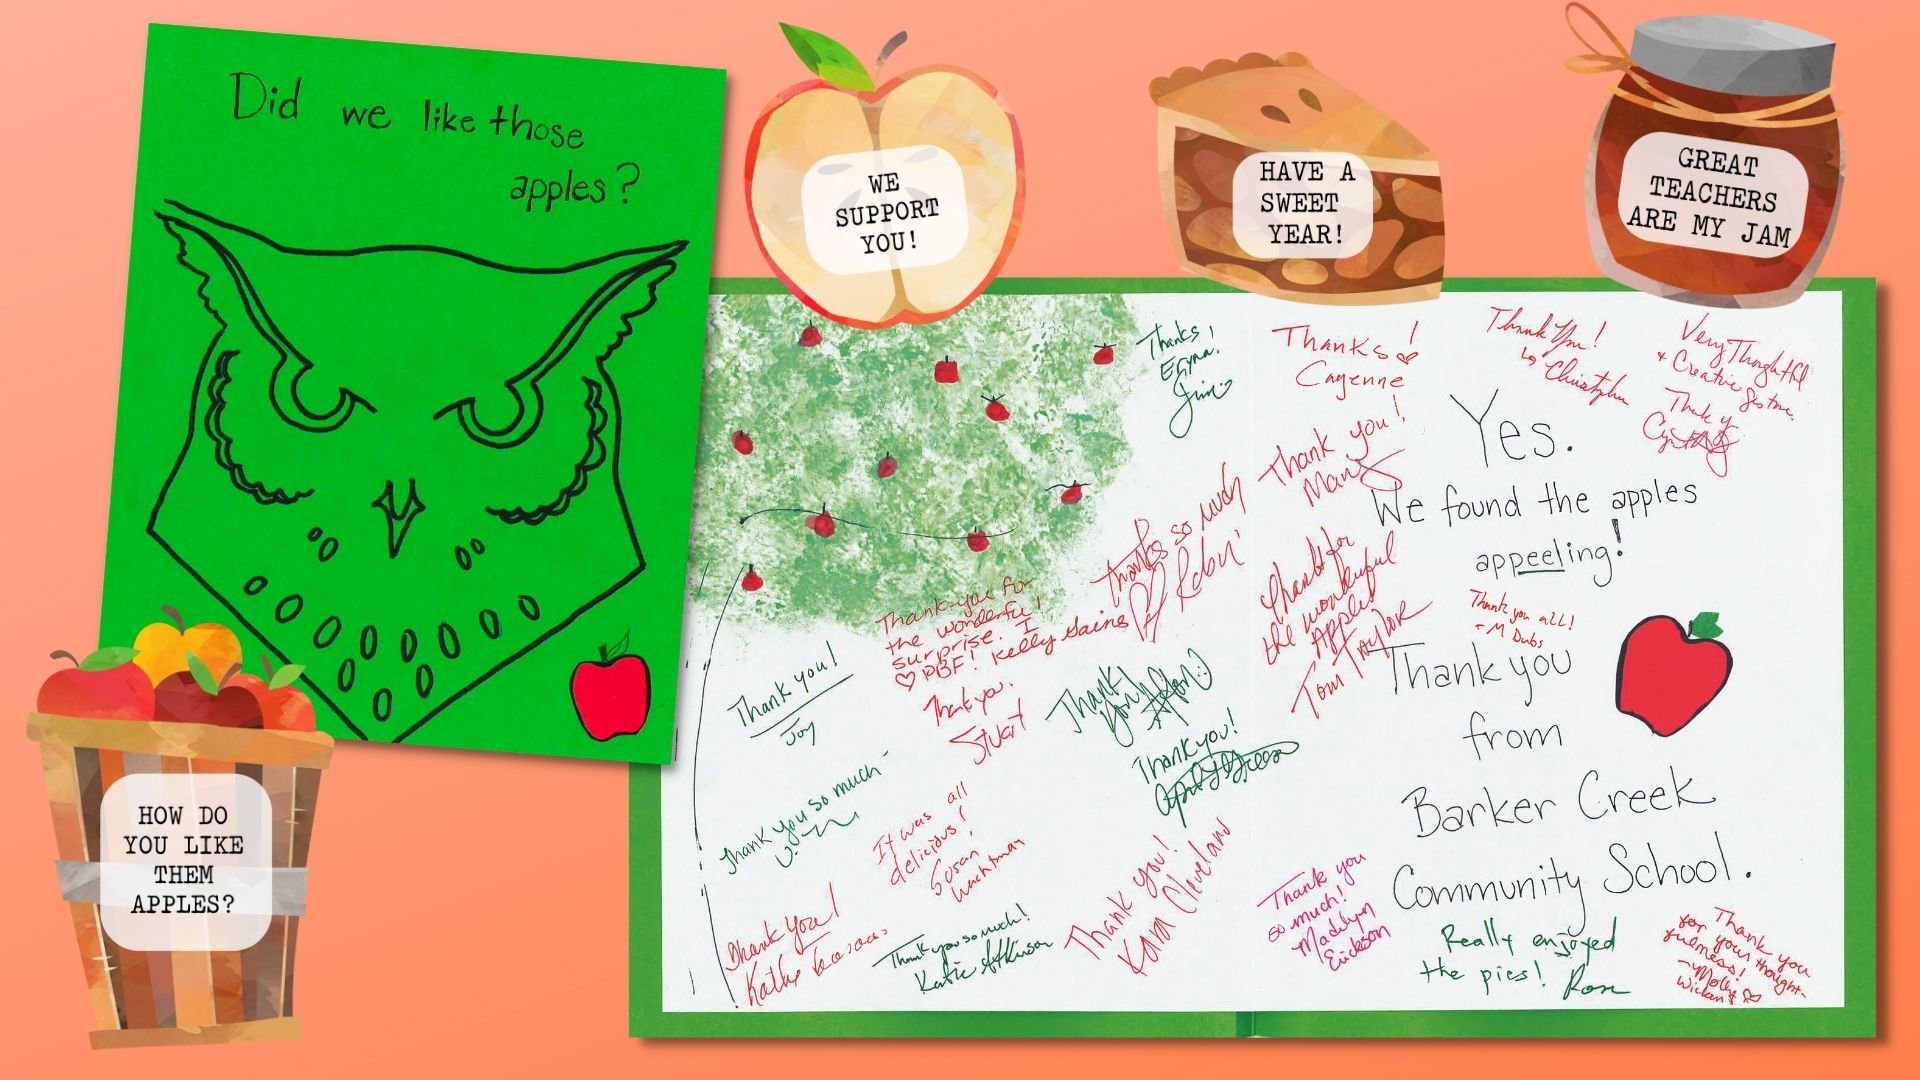 Did we like those
apples?
WE
SUPPORT
YOU!
HAVE A
SWEET
YEAR!
GREAT
TEACHERS
ARE MY JAM
HOW DO
YOU LIKE
THEM
APPLES?
Thanks,
Jim
Thanks!
Cayenne
Thank You!
Christopher
Very Thoughtful
+ Creative gesture.
Thank you!
Thanks so much
Robin
Yes.
We found the apples
appeeling!
Thank you all!
- M Dubs
Thank you
from
Barker Creek
Community School.
Thanks for
the wonderful
Apples
Tom Taylor
Thank-you for
the wonderful
surprise. I
♡ PBF! Kelly Gaines
Thank you!
Joy
Thank you.
Stuart
Thank
you!
Thank you!
Thank you so much
It was all
delicious!
Susan
Wachtman
Thank You!
Kathe
Thank you so much!
Katie Atkinson
Thank you!
Kara Cleveland
Thank you
so much!
Madilyn
Erickson
Really enjoyed
the pies! Ron
Thank you
for your thought-
fulness!
- Molly